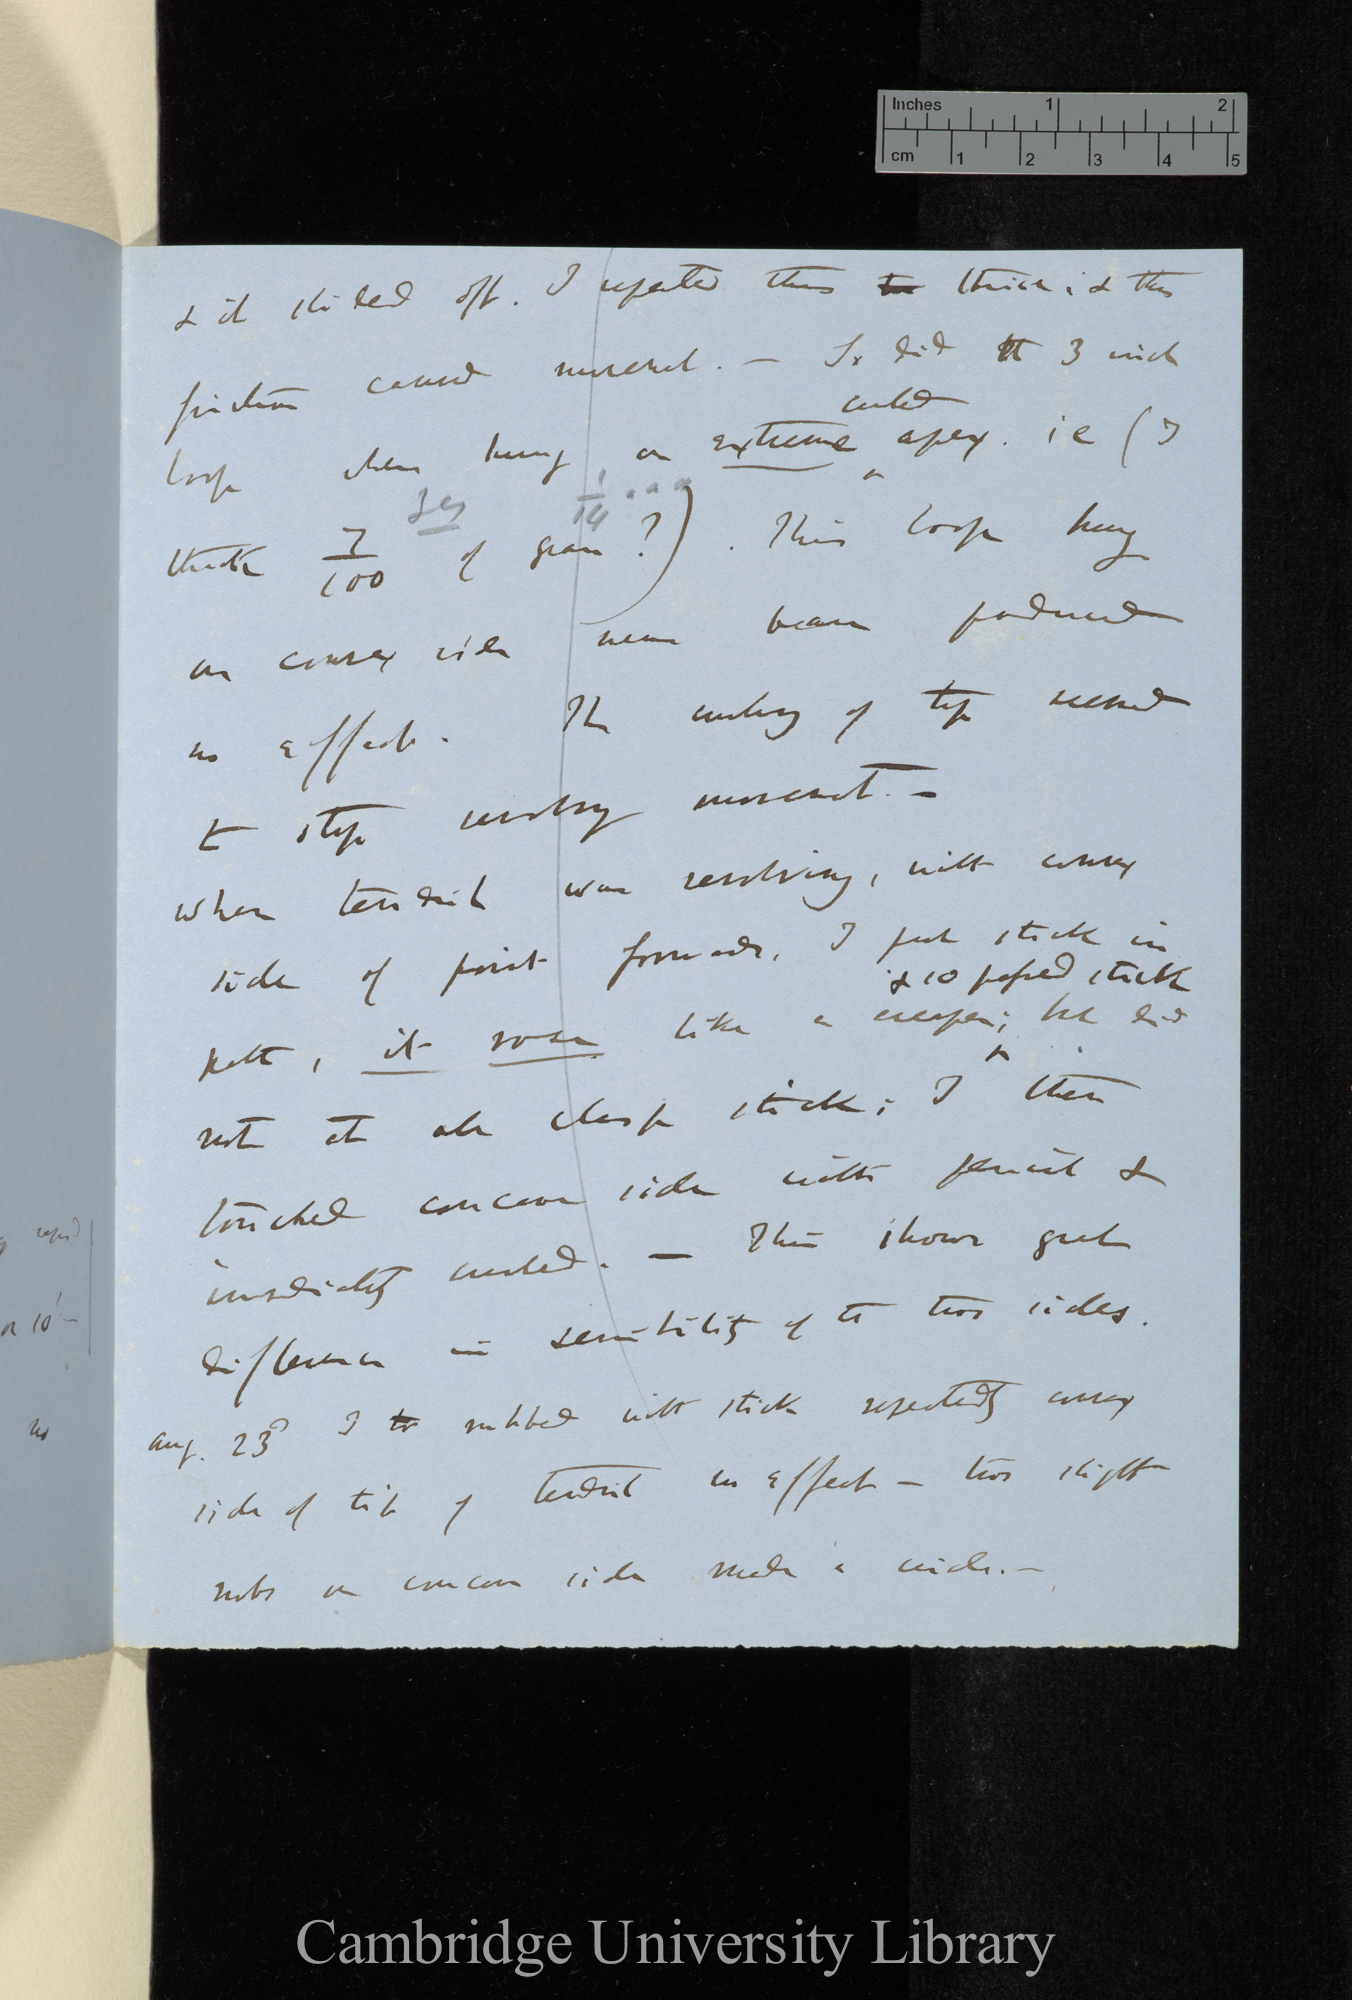 Inches 1 2
cm 1 2 3 4 5
& it slided off. I repeated this thrice; & this
friction caused movement. — So did 3 inch
curled
loop when hung on extreme apex. ie (I
1/14
think 7/100 of grain?). This loop hung
on convex side near beam produced
no effect. The curling of tip seemed
to stop revolving movement. —
When tendril was revolving, with convex
side of point forwards, I put stick in
& so passed stick
path, it rose like a creeper; but did
not at all clasp stick; I then
touched concave side with pencil &
immediately curled. — This shows great
difference in sensibility of the two sides.
Aug. 23d I to rubbed with stick repeatedly convex
side of tip of tendril no effect — two slight
rubs on concave side made a circle. —
rapid
or 10' —
no
Cambridge University Library